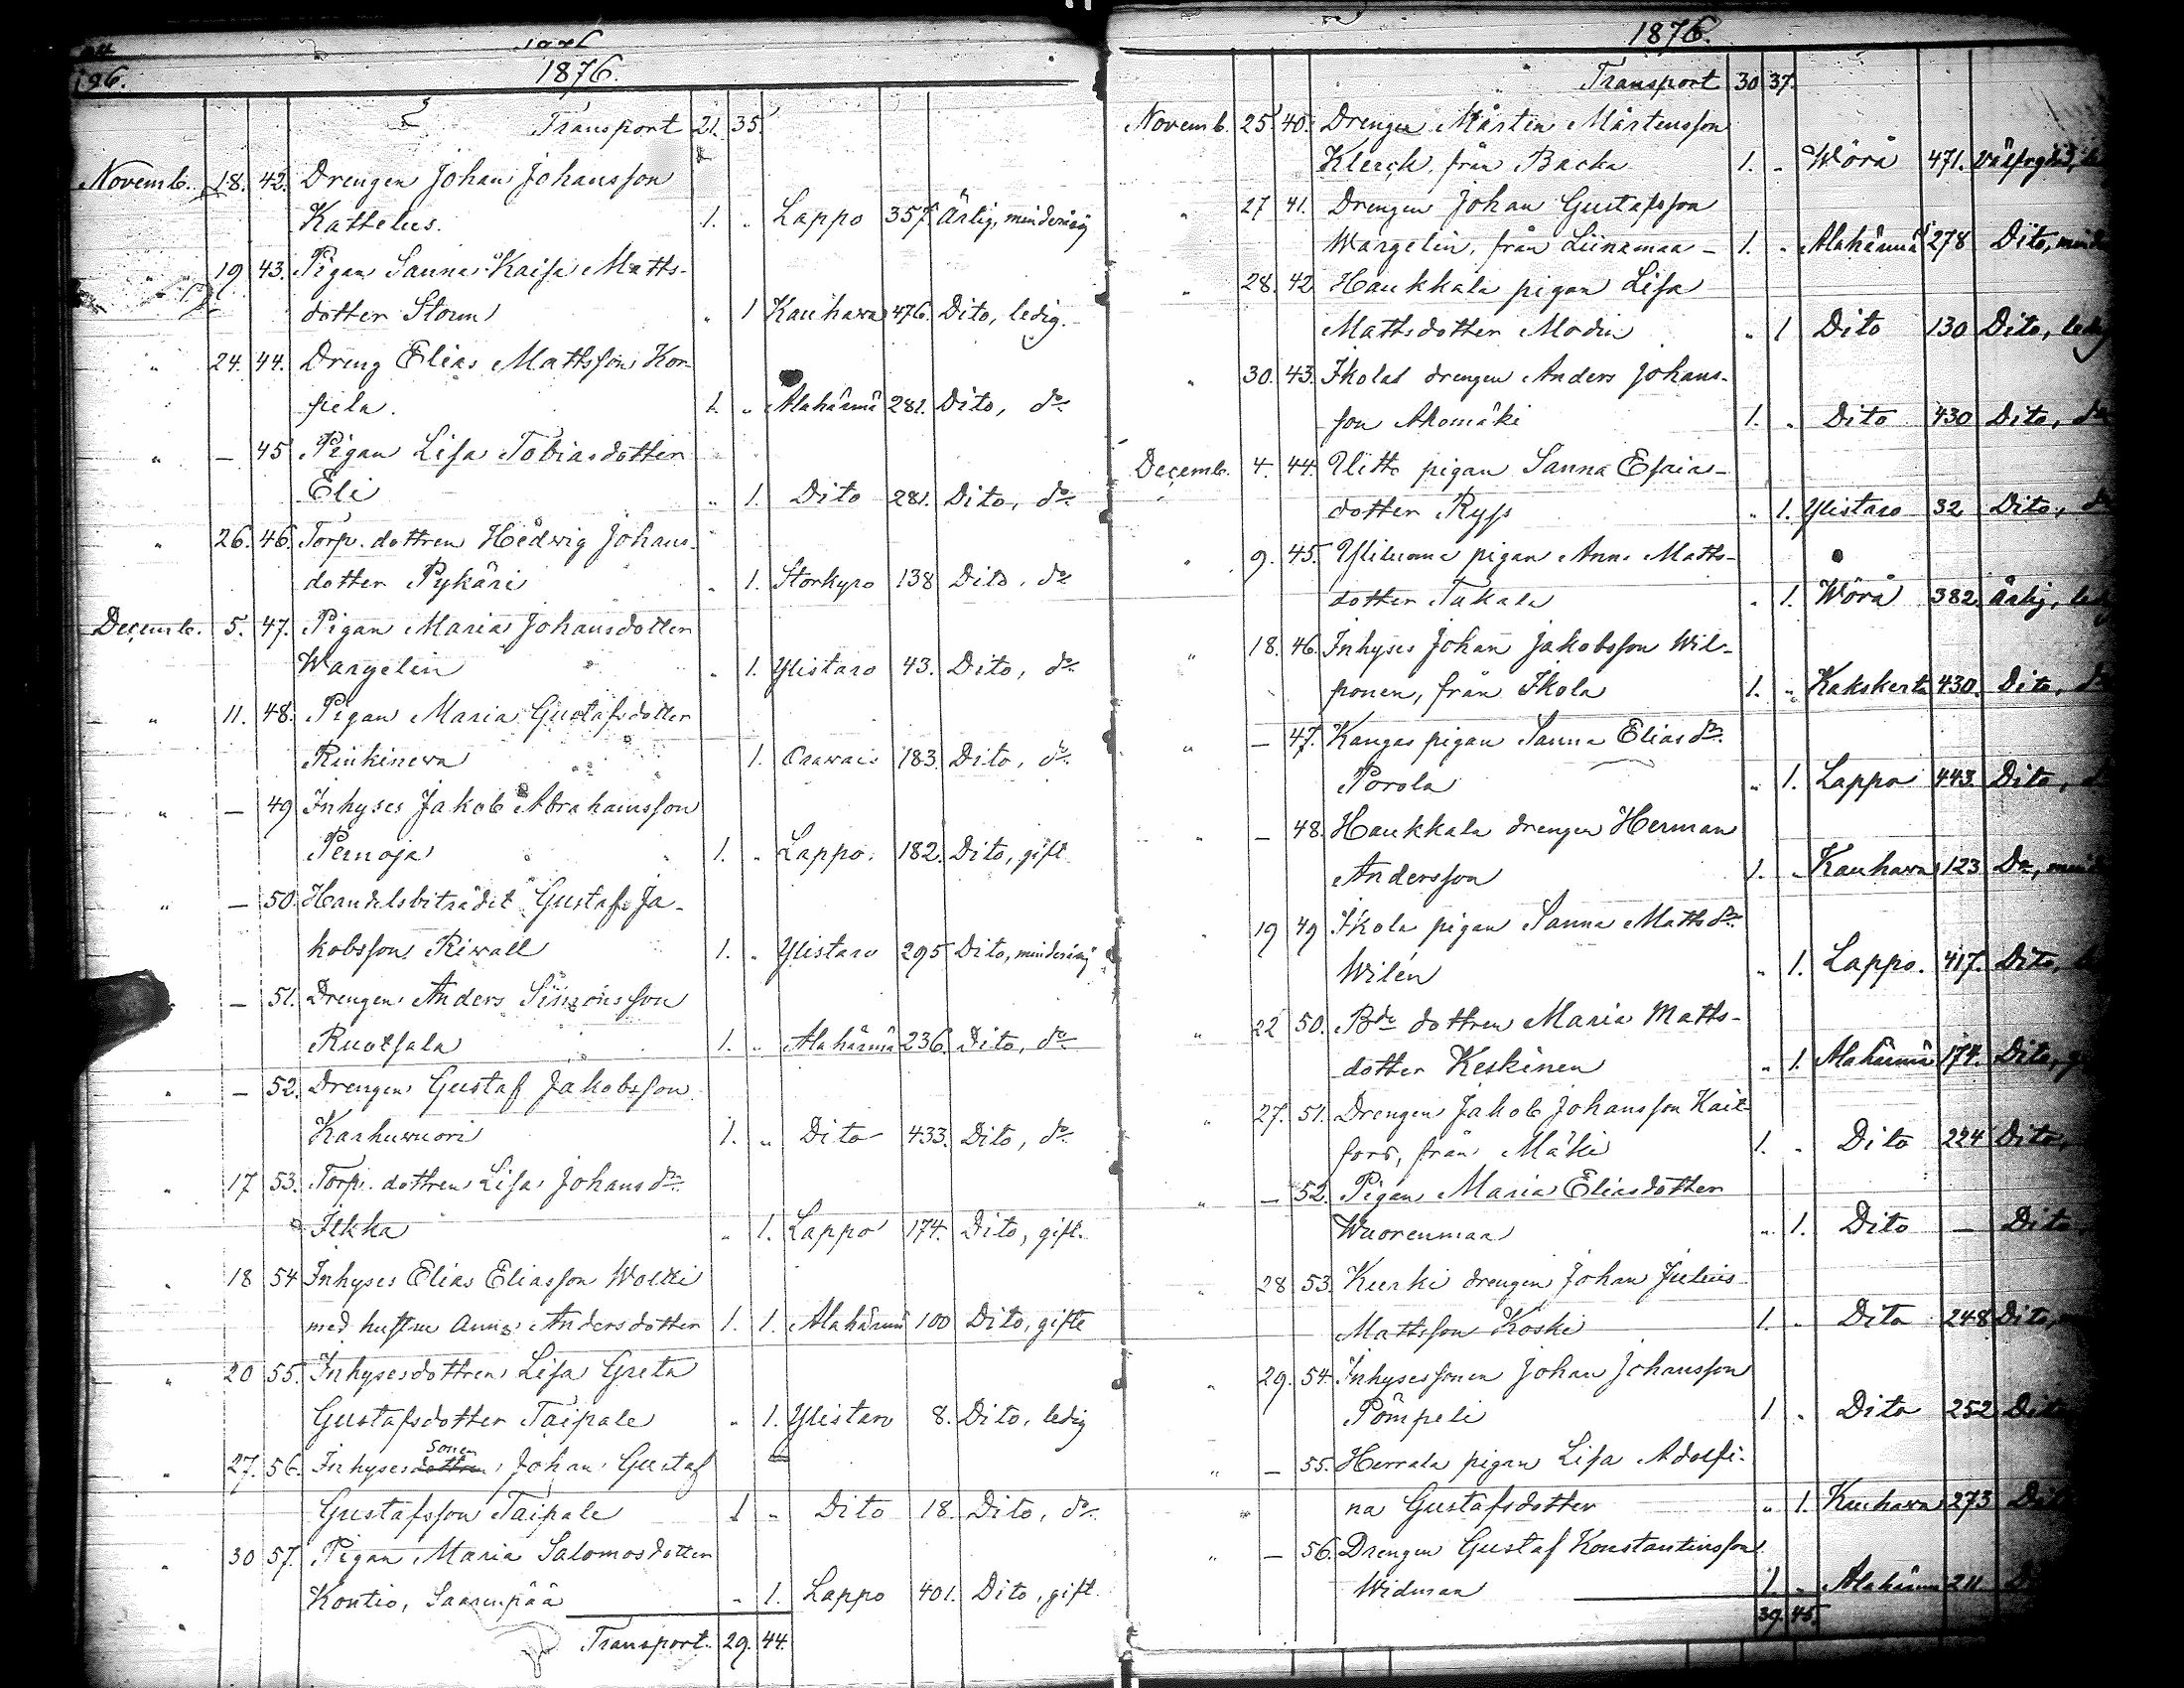 196.
1876.
Transport 21. 35.
Novemb. 18. 42. Drengen Johan Johansson
Kattelus. 1. " Lappo 357. Ärlig, minderårig
" 19 43. Pigan Sanna Kaisa Matts-
dotter Storm " 1 Kauhava 476. Dito, ledig.
" 24. 44. Dreng Elias Mattsson Kor-
pela. 1. " Alahärmä 281. Dito, do
" — 45 Pigan Lisa Tobiasdotter
Eli " 1. Dito 281. Dito, do
" 26. 46. Torp. dottren Hedwig Johans-
dotter Pykäri " 1. Storkyro 138 Dito, do
Decemb. 5. 47. Pigan Maria Johansdotter
Wargelin " 1. Ylistaro 43. Dito, do
" 11. 48. Pigan Maria Gustafsdotter
Rinkineva 1. Orawais 183. Dito, do
" — 49 Inhyses Jakob Abrahamsson
Pernoja 1. " Lappo. 182. Dito, gift
" — 50. Handelsbiträdet Gustaf Ja-
kobsson Riwall 1. " Ylistaro 295 Dito, minderårig
" — 51. Drengen Anders Simonsson
Ruotsala 1. " Alahärmä 236. Dito, do
" — 52. Drengen Gustaf Jakobsson
Karhuvuori 1. " Dito 433. Dito, do
" 17 53. Torp. dottren Lisa Johansdr
Ilkka " 1. Lappo 174. Dito, gift.
" 18 54 Inhyses Elias Eliasson Wolki
med hustru Anna Andersdotter 1. 1. Alahärmä 100 Dito, gifte
" 20 55. Inhysesdottren Lisa Greta
Gustafsdotter Taipale " 1. Ylistaro 8. Dito, ledig
" 27. 56. Inhyses sonen Johan Gustaf
Gustafsson Taipale 1 " Dito 18. Dito, do
" 30 57. Pigan Maria Salomosdotter
Kontio, Saarenpää " 1. Lappo 401. Dito, gift.
Transport. 29. 44.
1876.
Transport 30 37.
Novemb. 25 40. Drengen Mårten Mårtensson
Klerck från Backa 1. " Wörå 471. Välfrejdad,
" 27 41. Drengen Johan Gustafsson
Wargelin, från Liinamaa - 1. " Alahärmä 278 Dito,
" 28. 42 Haukkala pigan Lisa
Mattsdotter Modin " 1 Dito 130 Dito, ledig
" 30. 43. Ikola drengen Anders Johans-
son Ahomäki 1. " Dito 430 Dito, do
Decemb. 4. 44. Ulitto pigan Sanna Esaia-
dotter Ryss " 1. Ylistaro 32 Dito, do
" 9. 45. Yliluoma pigan Anna Matts-
dotter Takala " 1. Wörå 382. Ärlig, ledig
" 18. 46. Inhyses Johan Jakobsson Wil-
ponen, från Ikola 1. " Kakskerta 430. Dito, do
" — 47. Kangas pigan Sanna Eliasdr
Porola " 1. Lappo 443. Dito,
" — 48. Haukkala drengen Herman
Andersson 1. " Kauhava 123 Do,
" 19 49 Ikola pigan Sanna Mattsdr
Wilén " 1. Lappo. 417. Dito,
" 22 50. Bde dottren Maria Matts-
dotter Keskinen " 1. Alahärmä 174. Dito,
" 27. 51. Drengen Jakob Johansson Kait-
fors, från Mäki 1. " Dito 224 Dito,
" — 52. Pigan Maria Eliasdotter
Wuorenmaa " 1. Dito — Dito
" 28 53. Kurki drengen Johan Julius
Mattsson Koski 1. " Dito 248 Dito,
" 29. 54. Inhysessonen Johan Johansson
Pömpeli 1 " Dito 252 Dito
" — 55. Herrala pigan Lisa Adolfi-
" na Gustafsdotter " 1. Kauhava 273
" — 56. Drengen Gustaf Konstantinsson
Widman 1. " Alahärmä 211
39. 45.